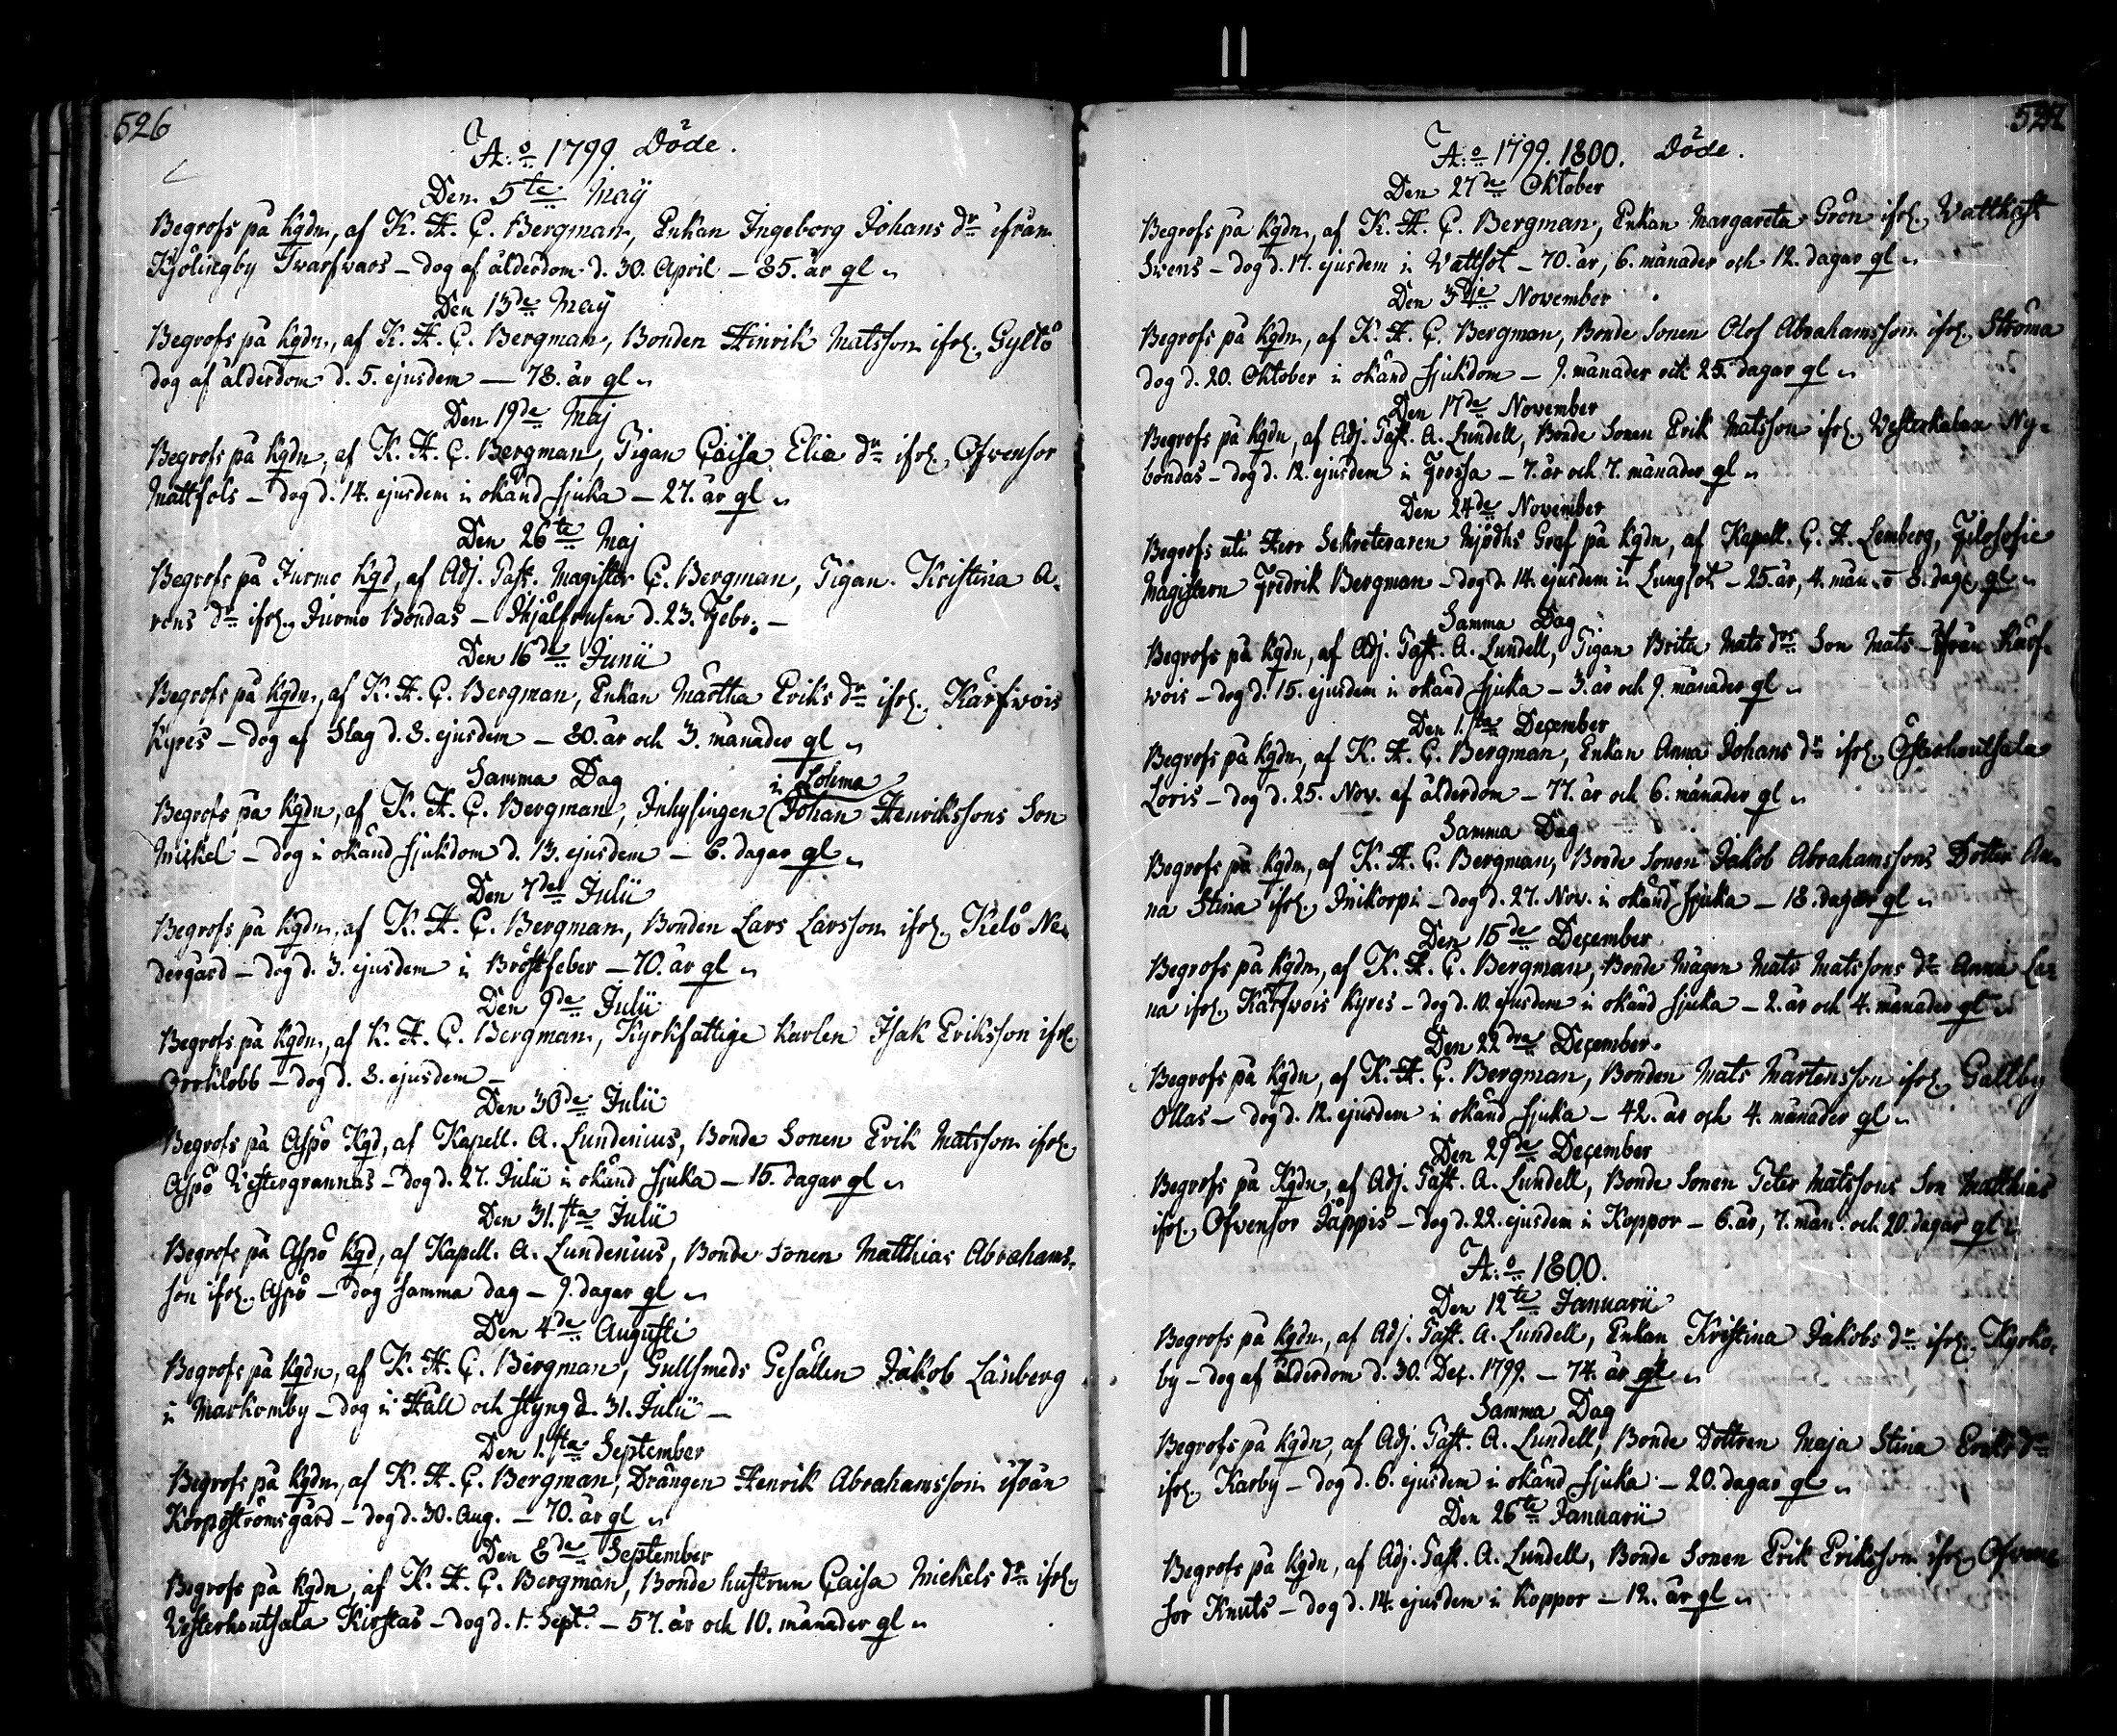 526
A:o 1799. Döde.
Den 5te Maÿ
Begrofs på Kgdn, af K. H. C. Bergman, Enkan Ingeborg Johans dr ifrån
Kyölingby Twarfwars – dog af ålderdom d. 30. April – 85. år gl
Den 13de Maÿ
Begrofs på Kgdn, af K. H. C. Bergman, Bonden Hinrik Matsson ifr. Gyltö
dog af ålderdom d. 5. ejusdem – 78. år gl
Den 19de Maj
Begrofs på Kgdn, af K. H. C. Bergman, Pigan Caisa Elia dr ifr. Ofvensor
Mattsols – dog d. 14. ejusdem i okänd sjuka – 27. år gl
Den 26te Maj
Begrofs på Jurmo Kgd, af Adj. Past. Magister C. Bergman, Pigan Kristina A-
rens dr ifr. Jurmo Bondas – Ihjälfrusen d. 23. Febr. –
Den 16de Junii
Begrofs på Kgdn, af K. H. C. Bergman, Enkan Martha Eriks dr ifr. Kärfwois
Kyres – dog af Slag d. 8. ejusdem – 80. år och 3. månader gl
Samma Dag i Lohma
Begrofs på Kgdn, af K. H. C. Bergman, Inhysingen (Johan Henrikssons Son
Mickel – dog i okänd sjukdom d. 13. ejusdem – 6. dagar gl
Den 7de Julii
Begrofs på Kgdn, af K. H. C. Bergman, Bonden Lars Larsson ifr. Kelö Ne-
dergård – dog d. 3. ejusdem i Bröstfeber – 70. år gl
Den 9de Julii
Begrofs på Kgdn, af K. H. C. Bergman, Kyrkfattige Karlen Isak Eriksson ifr.
Orrklobb – dog d. 8. ejusdem –
Den 30de Julii
Begrofs på Aspö Kgd, af Kapell. A. Lundenius, Bonde Sonen Erik Matsson ifr.
Aspö Westergrannas – dog d. 27. Julii i okänd sjuka – 15. dagar gl
Den 31.sta Julii
Begrofs på Aspö Kgd, af Kapell. A. Lundenius, Bonde Sonen Matthias Abrahams-
son ifr. Aspö – dog samma dag – 9. dagar gl
Den 4de Augusti
Begrofs på Kgdn, af K. H. C. Bergman, Gullsmeds Gesällen Jakob Länberg
i Markomby – dog i Håll och styng d. 31. Julii –
Den 1.sta September
Begrofs på Kgdn, af K. H. C. Bergman, Drängen Henrik Abrahamsson ifrån
Korpoströmsgård – dog d. 30. Aug. – 70. år gl
Den 8de September
Begrofs på Kgdn, af K. H. C. Bergman, Bonde hustrun Caisa Mickels dr ifr.
Westerhoutsala Kirstas – dog d. 1. Sept. – 57. år och 10. månader gl
527
A:o 1799. 1800. Döde.
Den 27de Oktober
Begrofs på Kgdn, af K. H. C. Bergman, Enkan Margareta Grön ifr. Wattkast
Swens – dog d. 17. ejusdem i Wattsot – 70. år, 6. månader och 12. dagar gl
Den 3dje November
Begrofs på Kgdn, af K. H. C. Bergman, Bonde Sonen Olof Abrahamsson ifr. Ströma
dog d. 20. Oktober i okänd sjukdom – 9. månader och 25. dagar gl
Den 17de November
Begrofs på Kgdn, af Adj. Past. A. Lundell, Bonde Sonen Erik Matsson ifr. Westerkalax Ny-
bondas – dog d. 12. ejusdem i Frossa – 7. år och 7. månader gl
Den 24de November
Begrofs uti Herr Sekreteraren Mjödhs Graf på Kgdn, af Kapell. C. H. Lemberg, Filosofie
Magistern Fredrik Bergman – dog d. 14. ejusdem i Lungsot – 25. år, 4. mån. o 8. dag. gl
Samma Dag
Begrofs på Kgdn, af Adj. Past. A. Lundell, Pigan Brita Mats drs Son Mats ifrån Kärf-
wois – dog d. 15. ejusdem i okänd sjuka – 3. år och 9. månader gl
Den 1.sta December
Begrofs på Kgdn, af K. H. C. Bergman, Enkan Anna Johans dr ifr. Österhoutsala
Loris – dog d. 25. Nov. af ålderdom – 77. år och 6. månader gl
Samma Dag
Begrofs på Kgdn, af K. H. C. Bergman, Bonde Sonen Jakob Abrahamssons Dotter An-
na Stina ifr. Inikorpi – dog d. 27. Nov. i okänd sjuka – 18. dagar gl
Den 15de December
Begrofs på Kgdn, af K. H. C. Bergman, Bonde Mågen Mats Matssons dr Anna Ca-
na ifr. Kärfwois Kyres – dog d. 10. ejusdem i okänd sjuka – 2. år och 4. månader gl
Den 22dra December
Begrofs på Kgdn, af K. H. C. Bergman, Bonden Mats Mårtensson ifr. Galtby
Ollas – dog d. 12. ejusdem i okänd sjuka – 42. år och 4. månader gl
Den 29de December
Begrofs på Kgdn, af Adj. Past. A. Lundell, Bonde Sonen Peter Matssons Son Matthias
ifr. Ofvensor Jäppis – dog d. 22. ejusdem i Koppor – 6. år, 7. mån. och 20. dagar gl
A:o 1800.
Den 12te Januarii
Begrofs på Kgdn, af Adj. Past. A. Lundell, Enkan Kristina Jakobs dr ifr. Kyrko-
by – dog af ålderdom d. 30. Dec. 1799. – 74. år gl
Samma Dag
Begrofs på Kgdn, af Adj. Past. A. Lundell, Bonde Dottren Maja Stina Eriks dr
ifr. Karby – dog d. 6. ejusdem i okänd sjuka – 20. dagar gl
Den 26te Januarii
Begrofs på Kgdn, af Adj. Past. A. Lundell, Bonde Sonen Erik Eriksson ifr. Ofven-
sor Knuts – dog d. 14. ejusdem i Koppor – 12. år gl